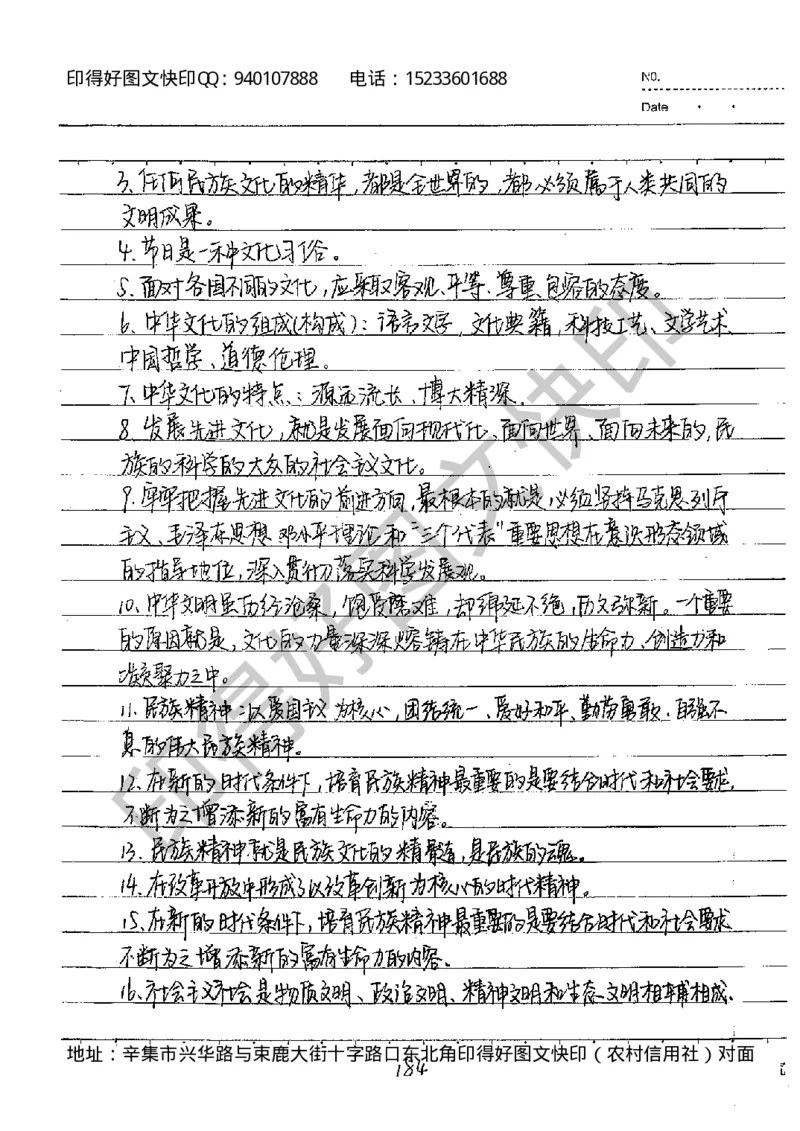 印得好图文快印QQ：940107888 电话：15233601688
NO.
Date
3、任何民族文化的精华，都是全世界的，都必须属于人类共同的
文明成果。
4、节日是一种文化习俗。
5、面对各国不同的文化，应采取客观、平等、尊重、包容的态度。
6、中华文化的组成(构成)：语言文字，文化典籍，科技工艺、文学艺术
中国哲学、道德伦理。
7、中华文化的特点：源远流长、博大精深.
8、发展先进文化，就是发展面向现代化、面向世界、面向未来的，民
族的科学的大众的社会主义文化。
9、牢牢把握先进文化的前进方向，最根本的就是必须坚持马克思列宁
主义、毛泽东思想 邓小平理论和“三个代表”重要思想在意识形态领域
的指导地位，深入贯彻落实科学发展观。
10、中华文明虽历经沧桑，饱负磨难，却绵延不绝，历久弥新。一个重要
的原因就是，文化的力量深深熔铸在中华民族的生命力、创造力和
凝聚力之中。
11、民族精神：以爱国主义为核心，团结统一、爱好和平、勤劳勇敢、自强不
息的伟大民族精神。
12、在新的时代条件下，培育民族精神最重要的是要结合时代和社会要求，
不断为之增添新的富有生命力的内容。
13、民族精神就是民族文化的精髓，是民族的魂。
14、在改革开放中形成了以改革创新为核心的时代精神。
15、在新的时代条件下，培育民族精神最重要的是要结合时代和社会要求
不断为之增添新的富有生命力的内容。
16、社会主义社会是物质文明、政治文明、精神文明和生态文明相辅相成、
地址：辛集市兴华路与束鹿大街十字路口东北角印得好图文快印（农村信用社）对面
184
印得好图文快印